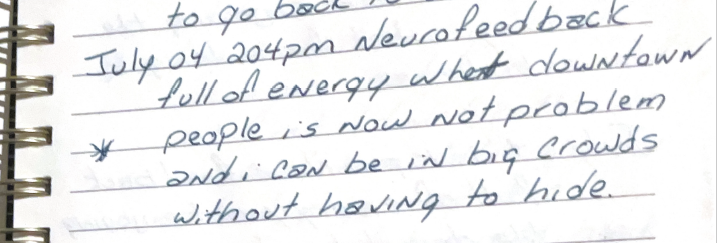 to go back
July 04 204pm Neurofeedback
full of energy whet downtown
* people is now not problem
and i can be in big crowds
without having to hide.